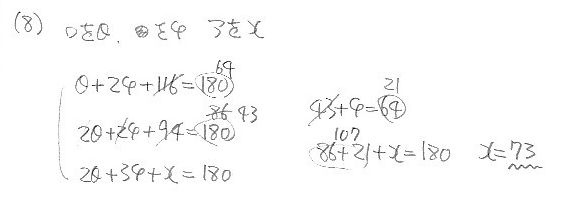 (8) ○をθ、●をφ アをx
θ+2φ+116=180 64
2θ+2φ+94=180 86 43
2θ+3φ+x=180
43+φ=64 21
86+21+x=180 107 x=73